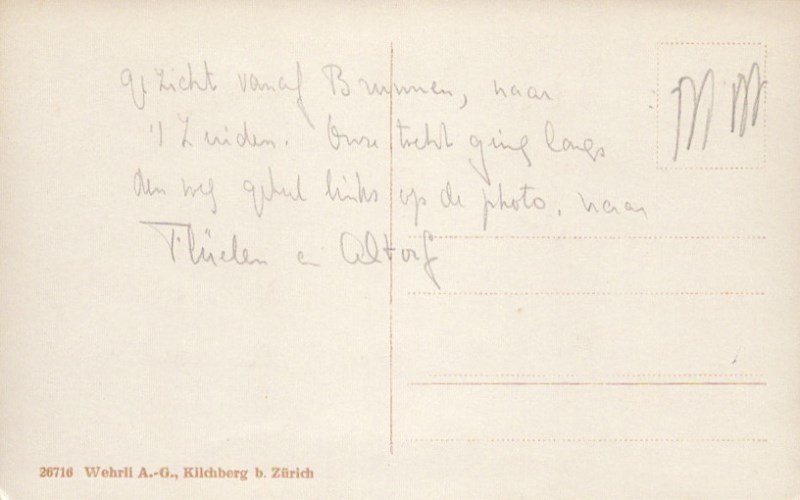 gezicht vanaf Brunnen, naar
't Zuiden. Onze trekt ging langs
den weg geheel links op de photo, naar
Flüelen en Altorf
26716 Wehrli A.-G., Kilchberg b. Zürich